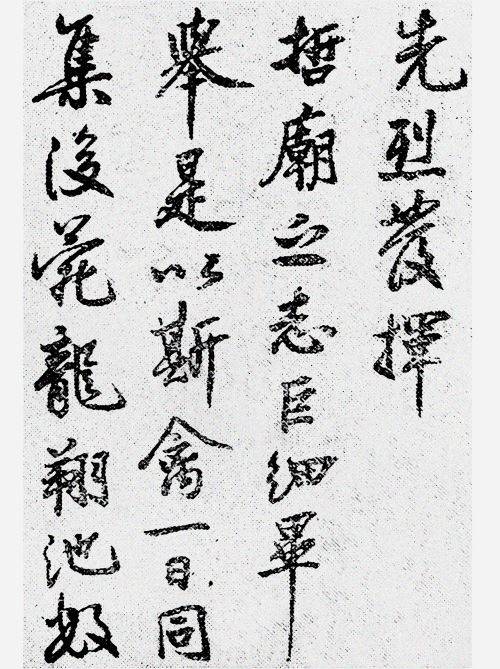 先烈發揮
哲廟之志巨細畢
舉是以斯禽一日同
集後苑龍翔池